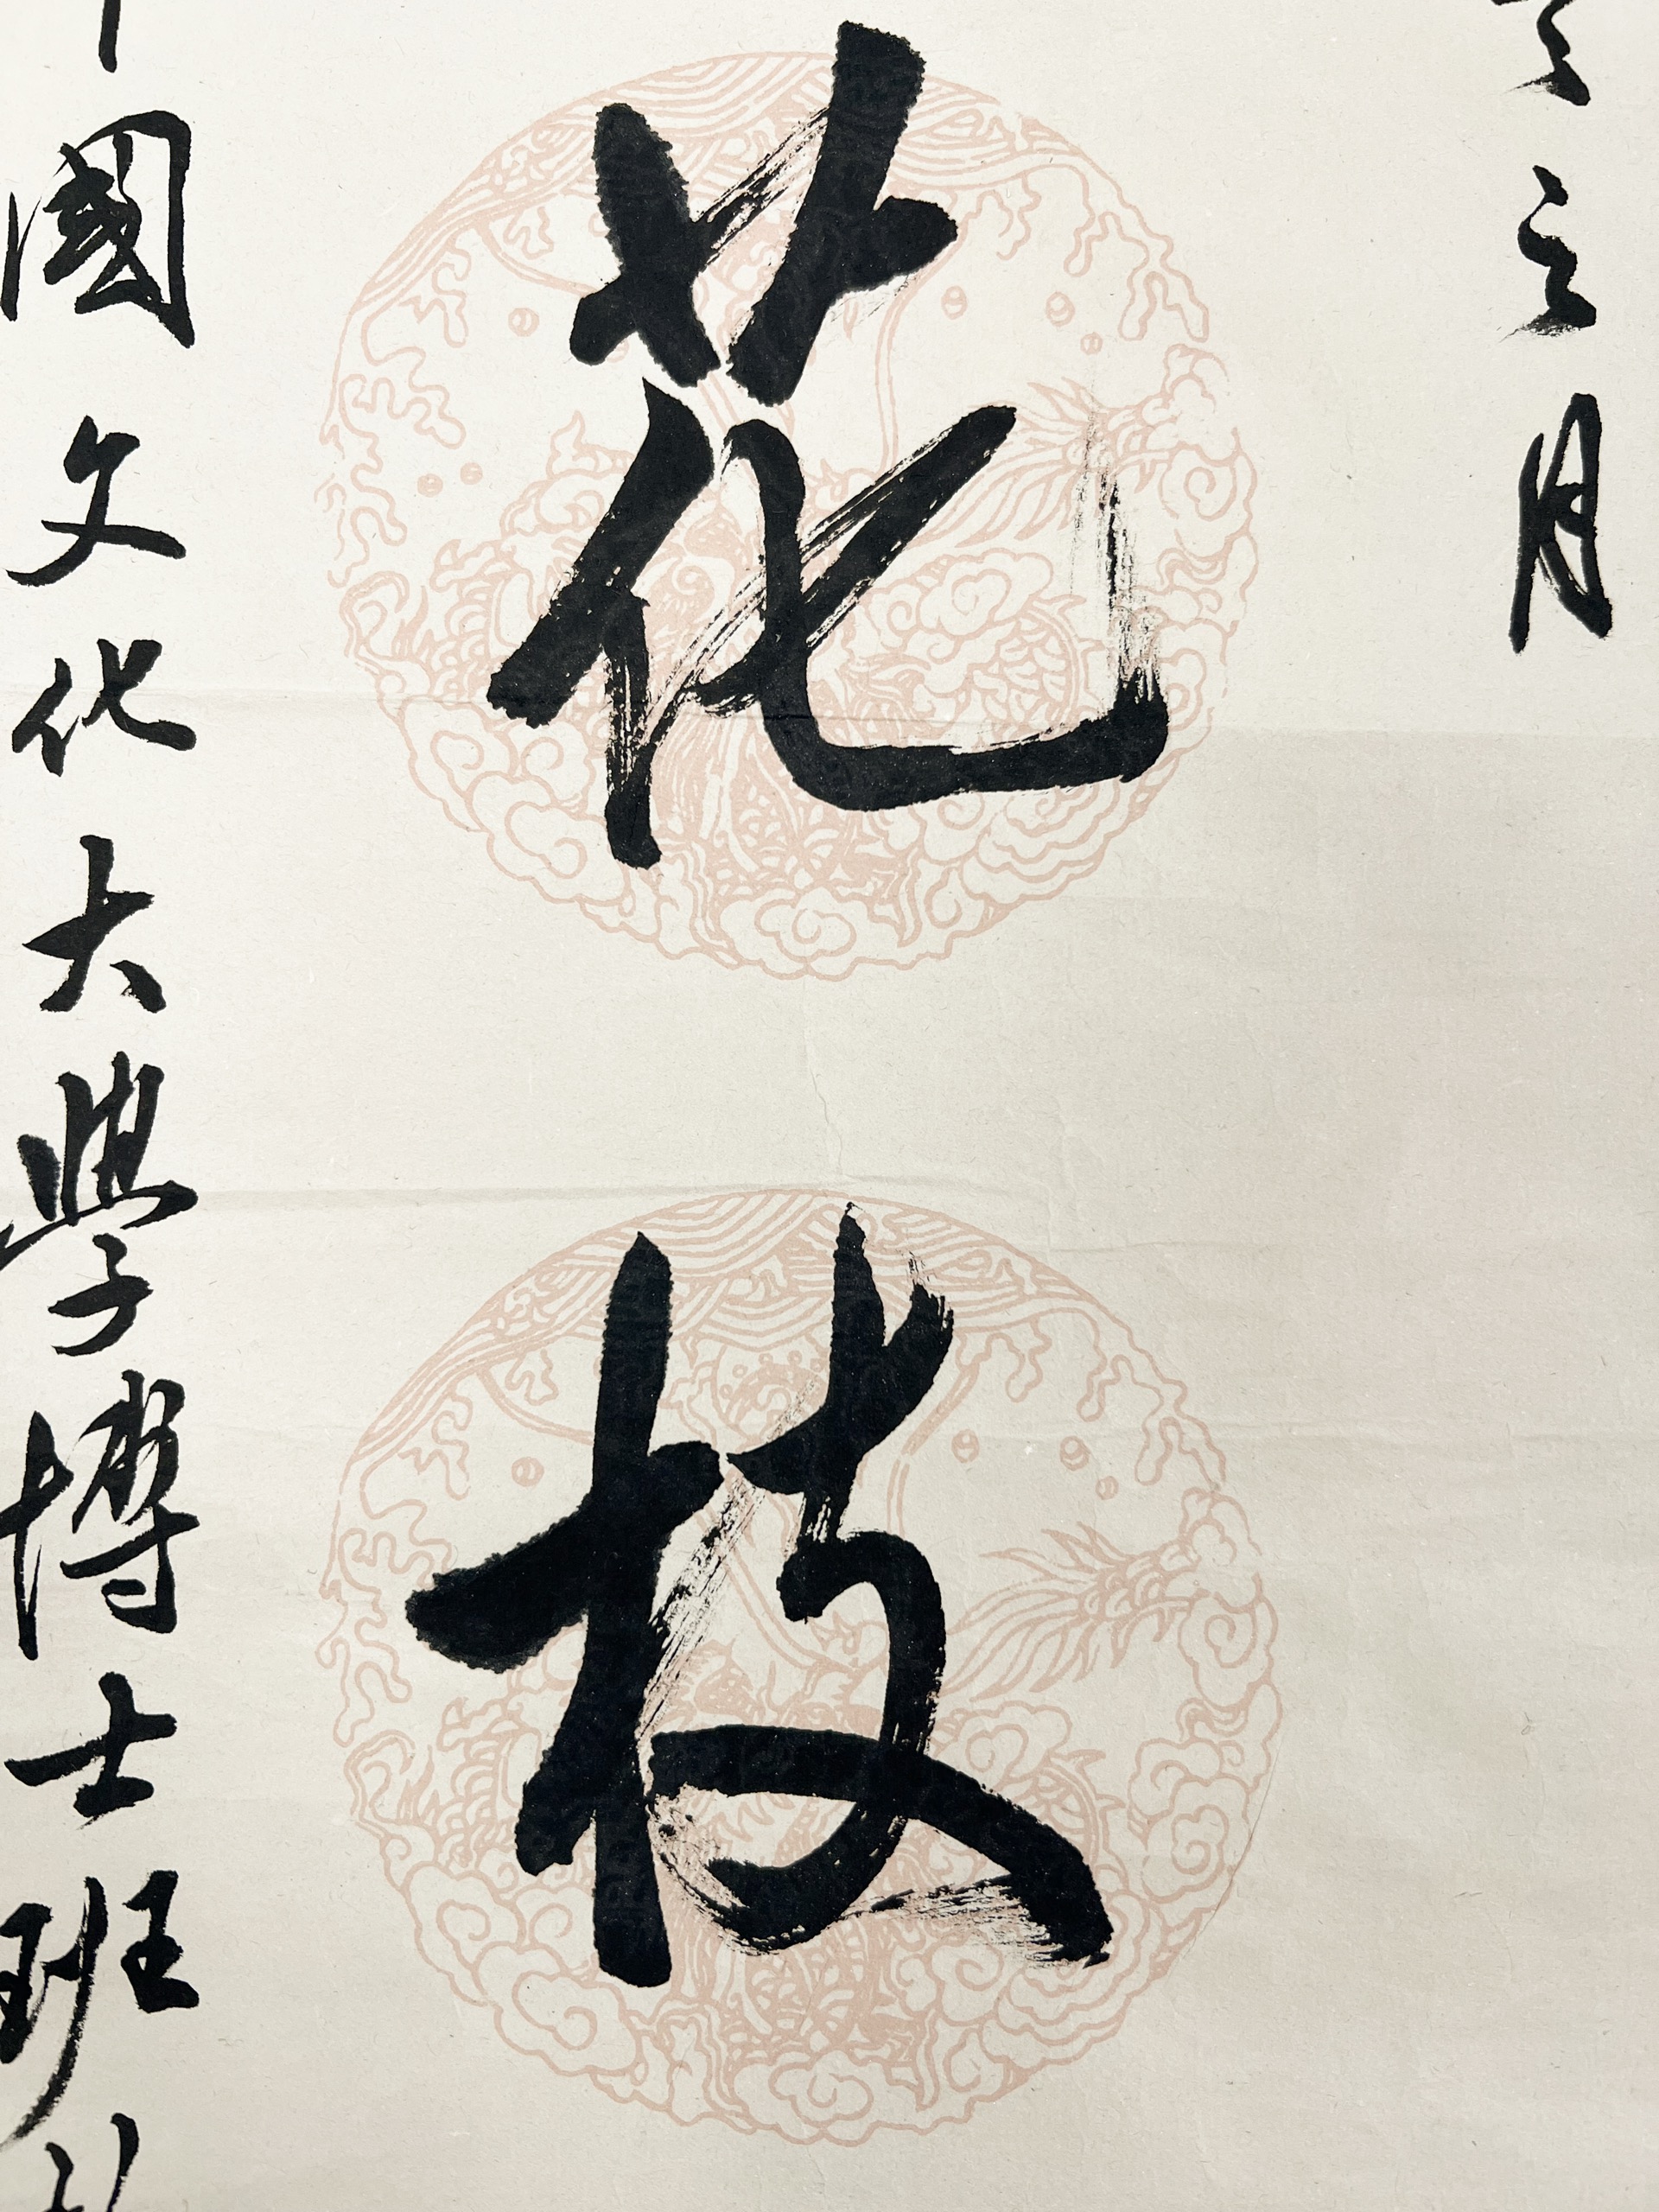 三月
花枝
國文化大學博士班